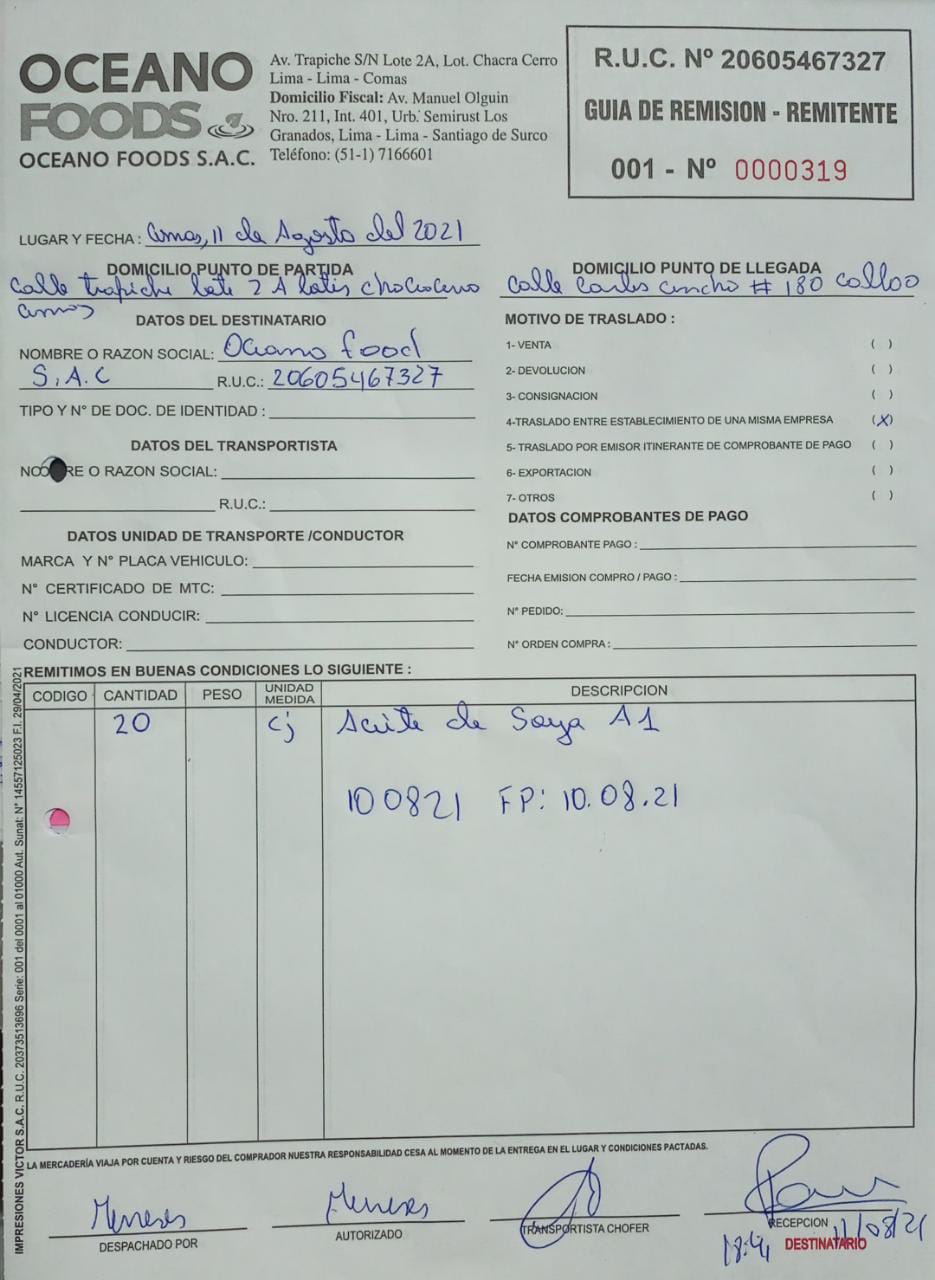 OCEANO
FOODS
OCEANO FOODS S.A.C.
Av. Trapiche S/N Lote 2A, Lot. Chacra Cerro
Lima - Lima - Comas
Domicilio Fiscal: Av. Manuel Olguin
Nro. 211, Int. 401, Urb. Semirust Los
Granados, Lima - Lima - Santiago de Surco
Teléfono: (51-1) 7166601
R.U.C. Nº 20605467327
GUIA DE REMISION - REMITENTE
001 - Nº 0000319
LUGAR Y FECHA : Comas, 11 de Agosto del 2021
DOMICILIO PUNTO DE PARTIDA
Calle trapiche lote 2 A
DOMICILIO PUNTO DE LLEGADA
Calle Carlos # 180 Callao
DATOS DEL DESTINATARIO
NOMBRE O RAZON SOCIAL: Oceano food
S.A.C R.U.C.: 20605467327
TIPO Y N° DE DOC. DE IDENTIDAD :
DATOS DEL TRANSPORTISTA
RE O RAZON SOCIAL:
R.U.C.:
DATOS UNIDAD DE TRANSPORTE /CONDUCTOR
MARCA Y N° PLACA VEHICULO:
N° CERTIFICADO DE MTC:
N° LICENCIA CONDUCIR:
CONDUCTOR:
MOTIVO DE TRASLADO :
1- VENTA ( )
2- DEVOLUCION ( )
3- CONSIGNACION ( )
4-TRASLADO ENTRE ESTABLECIMIENTO DE UNA MISMA EMPRESA (X)
5- TRASLADO POR EMISOR ITINERANTE DE COMPROBANTE DE PAGO ( )
6- EXPORTACION ( )
7- OTROS ( )
DATOS COMPROBANTES DE PAGO
N° COMPROBANTE PAGO :
FECHA EMISION COMPRO / PAGO :
N° PEDIDO:
N° ORDEN COMPRA :
REMITIMOS EN BUENAS CONDICIONES LO SIGUIENTE :
CODIGO CANTIDAD PESO UNIDAD MEDIDA DESCRIPCION
20 cj Aceite de Soya A1
100821 FP: 10.08.21
IMPRESIONES VICTOR S.A.C. R.U.C. 20373513696 Serie: 001 del 0001 al 01000 Aut. Sunat: N° 14557125023 F.I. 29/04/2021
LA MERCADERÍA VIAJA POR CUENTA Y RIESGO DEL COMPRADOR NUESTRA RESPONSABILIDAD CESA AL MOMENTO DE LA ENTREGA EN EL LUGAR Y CONDICIONES PACTADAS.
Meneses
DESPACHADO POR
Meneses
AUTORIZADO
TRANSPORTISTA CHOFER
RECEPCION 11/08/21
DESTINATARIO